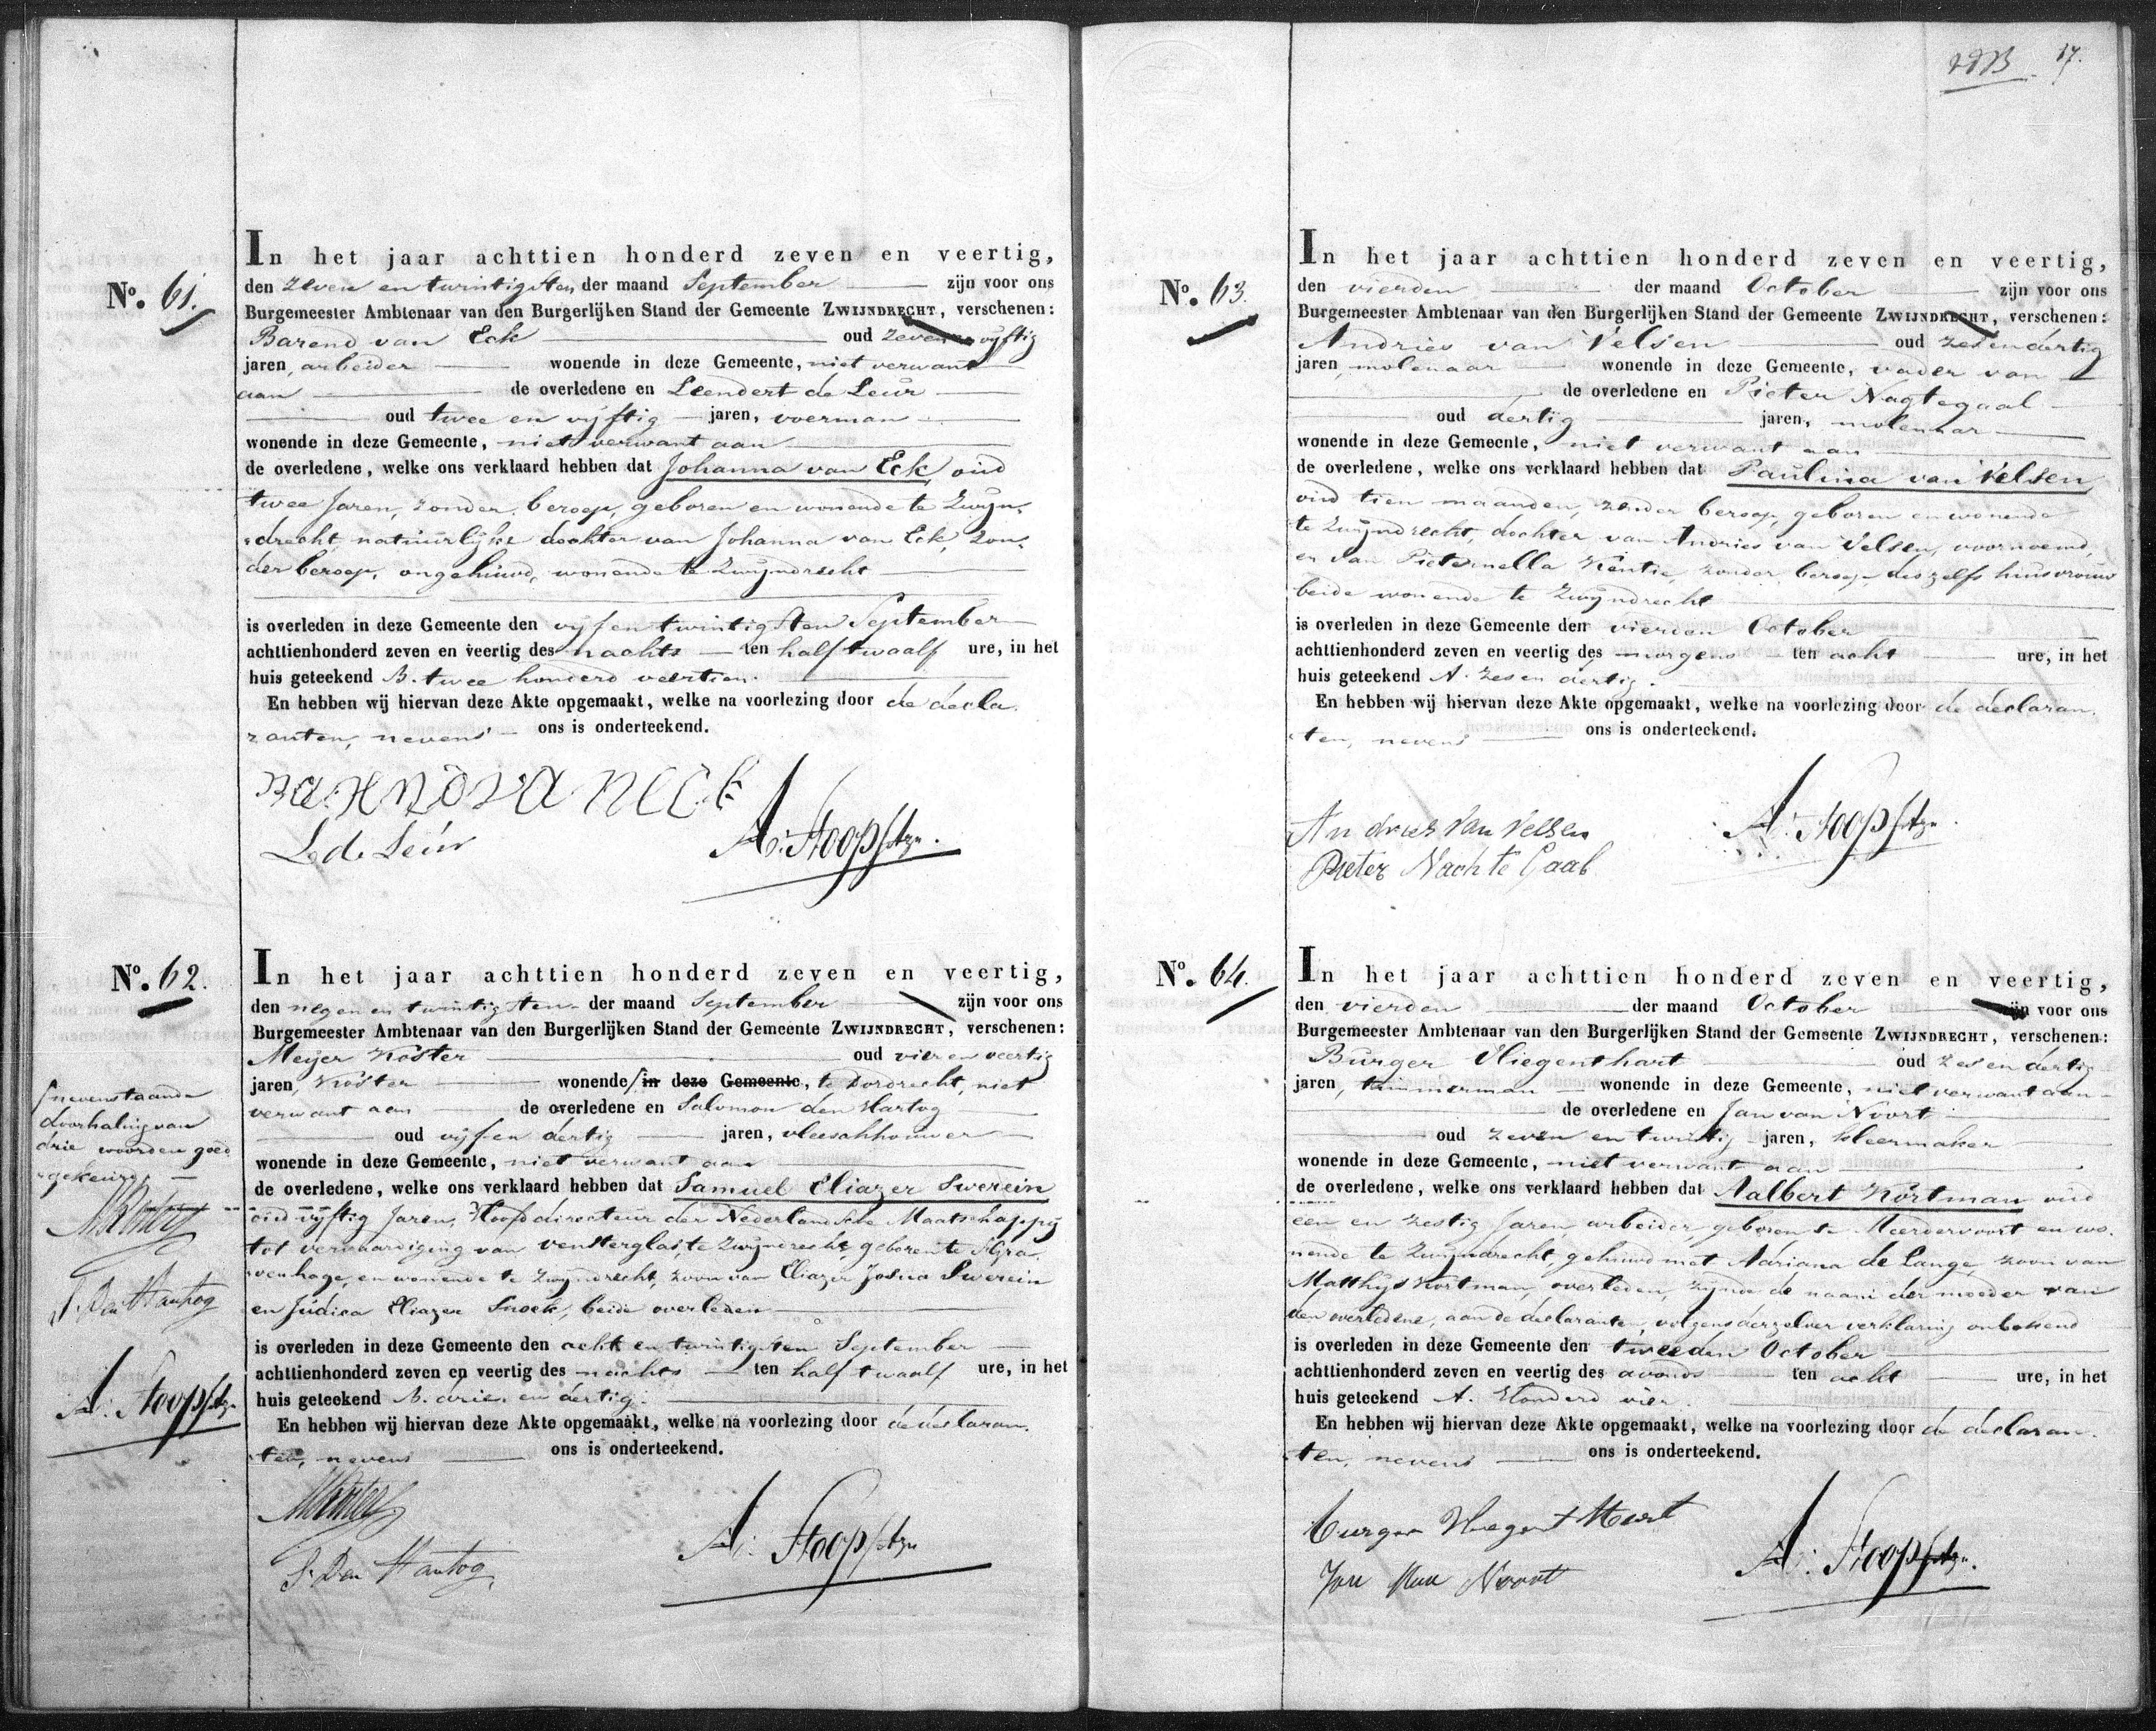 No. 61.
In het jaar achttien honderd zeven en veertig,
den zeven en twintigsten der maand September zijn voor ons
Burgemeester Ambtenaar van den Burgerlijken Stand der Gemeente ZWIJNDRECHT, verschenen:
Barend van Eck oud zeven en vijftig
jaren, arbeider wonende in deze Gemeente, niet verwant
aan de overledene en Leendert de Leur
oud twee en vijftig jaren, voerman
wonende in deze Gemeente, niet verwant aan
de overledene, welke ons verklaard hebben dat Johanna van Eck, oud
twee Jaren, zonder beroep, geboren en wonende te Zwijn-
drecht, natuurlijke dochter van Johanna van Eck, zon-
der beroep, ongehuwd, wonende te Zwijndrecht
is overleden in deze Gemeente den vijf en twintigsten September
achttienhonderd zeven en veertig des nachts ten half twaalf ure, in het
huis geteekend B. twee honderd veertien.
En hebben wij hiervan deze Akte opgemaakt, welke na voorlezing door de decla-
ranten, nevens ons is onderteekend.
BaRENd va NECk
L de Leur
A. Stoop fAzn.
No. 62.
In het jaar achttien honderd zeven en veertig,
den negen en twintigsten der maand September zijn voor ons
Burgemeester Ambtenaar van den Burgerlijken Stand der Gemeente ZWIJNDRECHT, verschenen:
Meijer Koster oud vier en veertig
jaren, Koster wonende / in deze Gemeente, te Dordrecht, niet
verwant aan de overledene en Salomon den Hartog
oud vijf en dertig jaren, vleeschhouwer
wonende in deze Gemeente, niet verwant aan
de overledene, welke ons verklaard hebben dat Samuel Eliazer Swerein
oud vijftig Jaren, Hoofddirecteur der Nederlandsche Maatschappij
tot vervaardiging van vensterglas, te Zwijndrecht, geboren te 'sGra-
venhage, en wonende te Zwijndrecht, zoon van Eliazer Josua Swerein
en Judica Eliazer Snoek, beide overleden
is overleden in deze Gemeente den acht en twintigsten September
achttienhonderd zeven en veertig des nachts ten half twaalf ure, in het
huis geteekend B. drie en dertig.
En hebben wij hiervan deze Akte opgemaakt, welke na voorlezing door de declaran-
ten, nevens ons is onderteekend.
MKoster
S. Den Hartog
A. Stoop fAzn
/nevenstaande
doorhaling van
drie woorden goed-
gekeurd.
MKoster
S. Den Hartog
A. Stoop fAzn
17.
No. 63.
In het jaar achttien honderd zeven en veertig,
den vierden der maand October zijn voor ons
Burgemeester Ambtenaar van den Burgerlijken Stand der Gemeente ZWIJNDRECHT, verschenen:
Andries van Velsen oud zes en dertig
jaren, molenaar wonende in deze Gemeente, vader van
de overledene en Pieter Nagtegaal
oud dertig jaren, molenaar
wonende in deze Gemeente, niet verwant aan
de overledene, welke ons verklaard hebben dat Paulina van Velsen,
oud tien maanden, zonder beroep, geboren en wonende
te Zwijndrecht, dochter van Andries van Velsen, voornoemd,
en van Pieternella Kentie, zonder beroep, deszelfs huisvrouw
beide wonende te Zwijndrecht
is overleden in deze Gemeente den vierden October
achttienhonderd zeven en veertig des morgens ten acht ure, in het
huis geteekend A. zes en dertig.
En hebben wij hiervan deze Akte opgemaakt, welke na voorlezing door de declaran-
ten, nevens ons is onderteekend.
Andries van Velsen
Pieter Nachte Gaal
A. Stoop fAzn.
No. 64.
In het jaar achttien honderd zeven en veertig,
den vierden der maand October zijn voor ons
Burgemeester Ambtenaar van den Burgerlijken Stand der Gemeente ZWIJNDRECHT, verschenen:
Burger Vliegenthart oud zes en dertig
jaren, timmerman wonende in deze Gemeente, niet verwant aan
de overledene en Jan van Noort
oud zeven en twintig jaren, kleermaker
wonende in deze Gemeente, niet verwant aan
de overledene, welke ons verklaard hebben dat Aalbert Kortman oud
een en zestig Jaren, arbeider, geboren te Meerdervoort en wo-
nende te Zwijndrecht, gehuwd met Adriana de Lange, zoon van
Matthijs Kortman, overleden, zijnde de naam der moeder van
den overledene, aan de declaranten, volgens derzelver verklaring onbekend
is overleden in deze Gemeente den tweeden October
achttienhonderd zeven en veertig des avonds ten acht ure, in het
huis geteekend A. Honderd vier.
En hebben wij hiervan deze Akte opgemaakt, welke na voorlezing door de declaran-
ten, nevens ons is onderteekend.
burger Vliegent Hart
Jan Van Noort
A. Stoop fAzn.